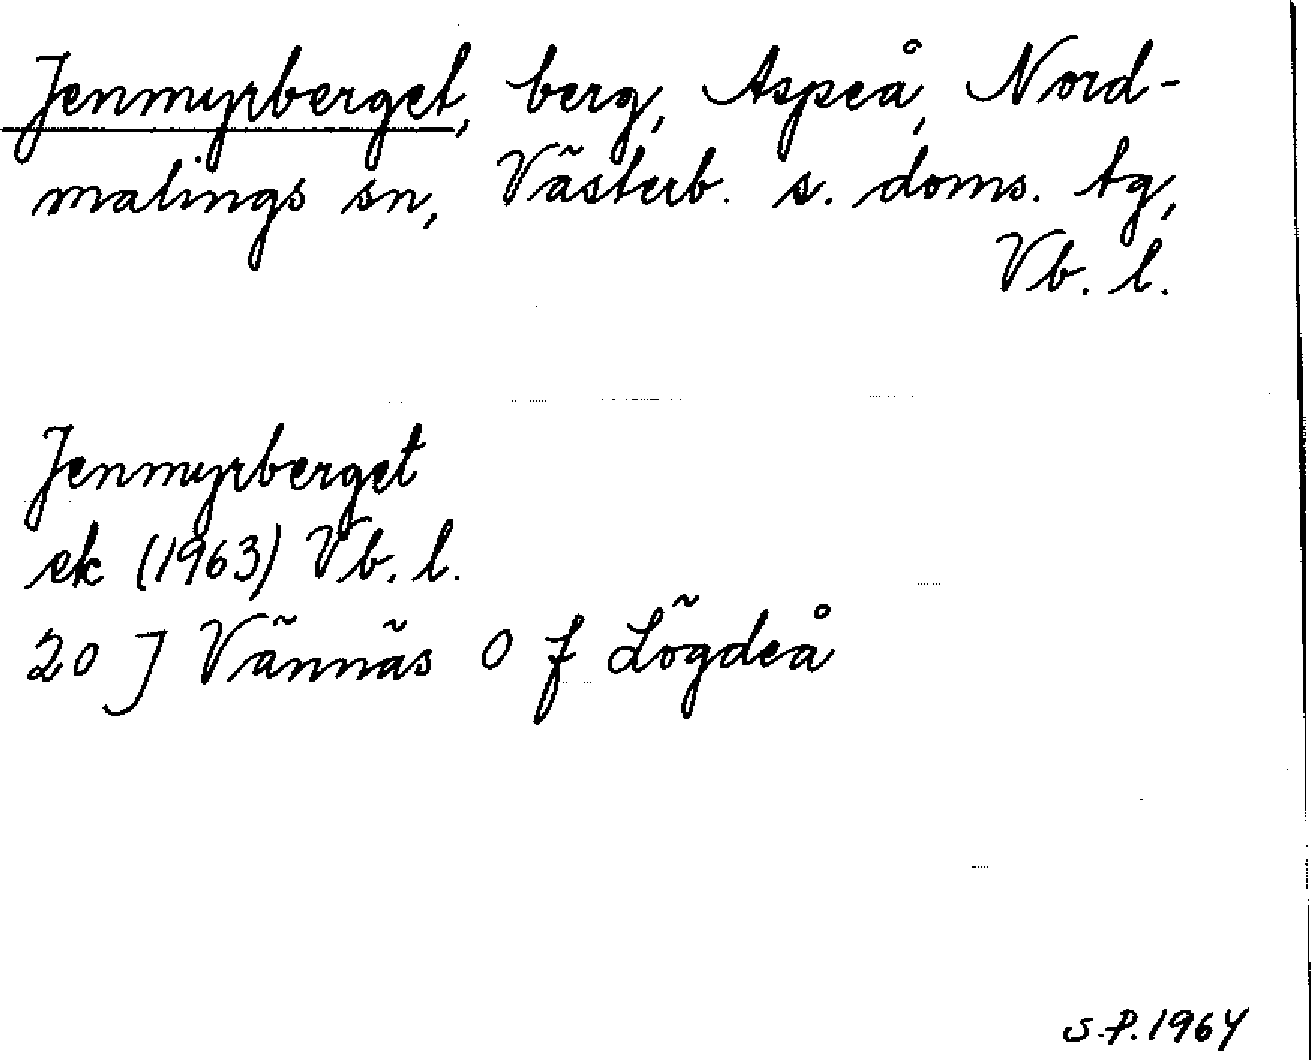 Jenmyrberget, berg, Aspeå, Nord-
malings sn, Västerb. s. doms. tg,
Vb. l.
Jenmyrberget
ek (1963) Vb. l.
20 J Vännäs 0 f Lögdeå
S.P. 1964